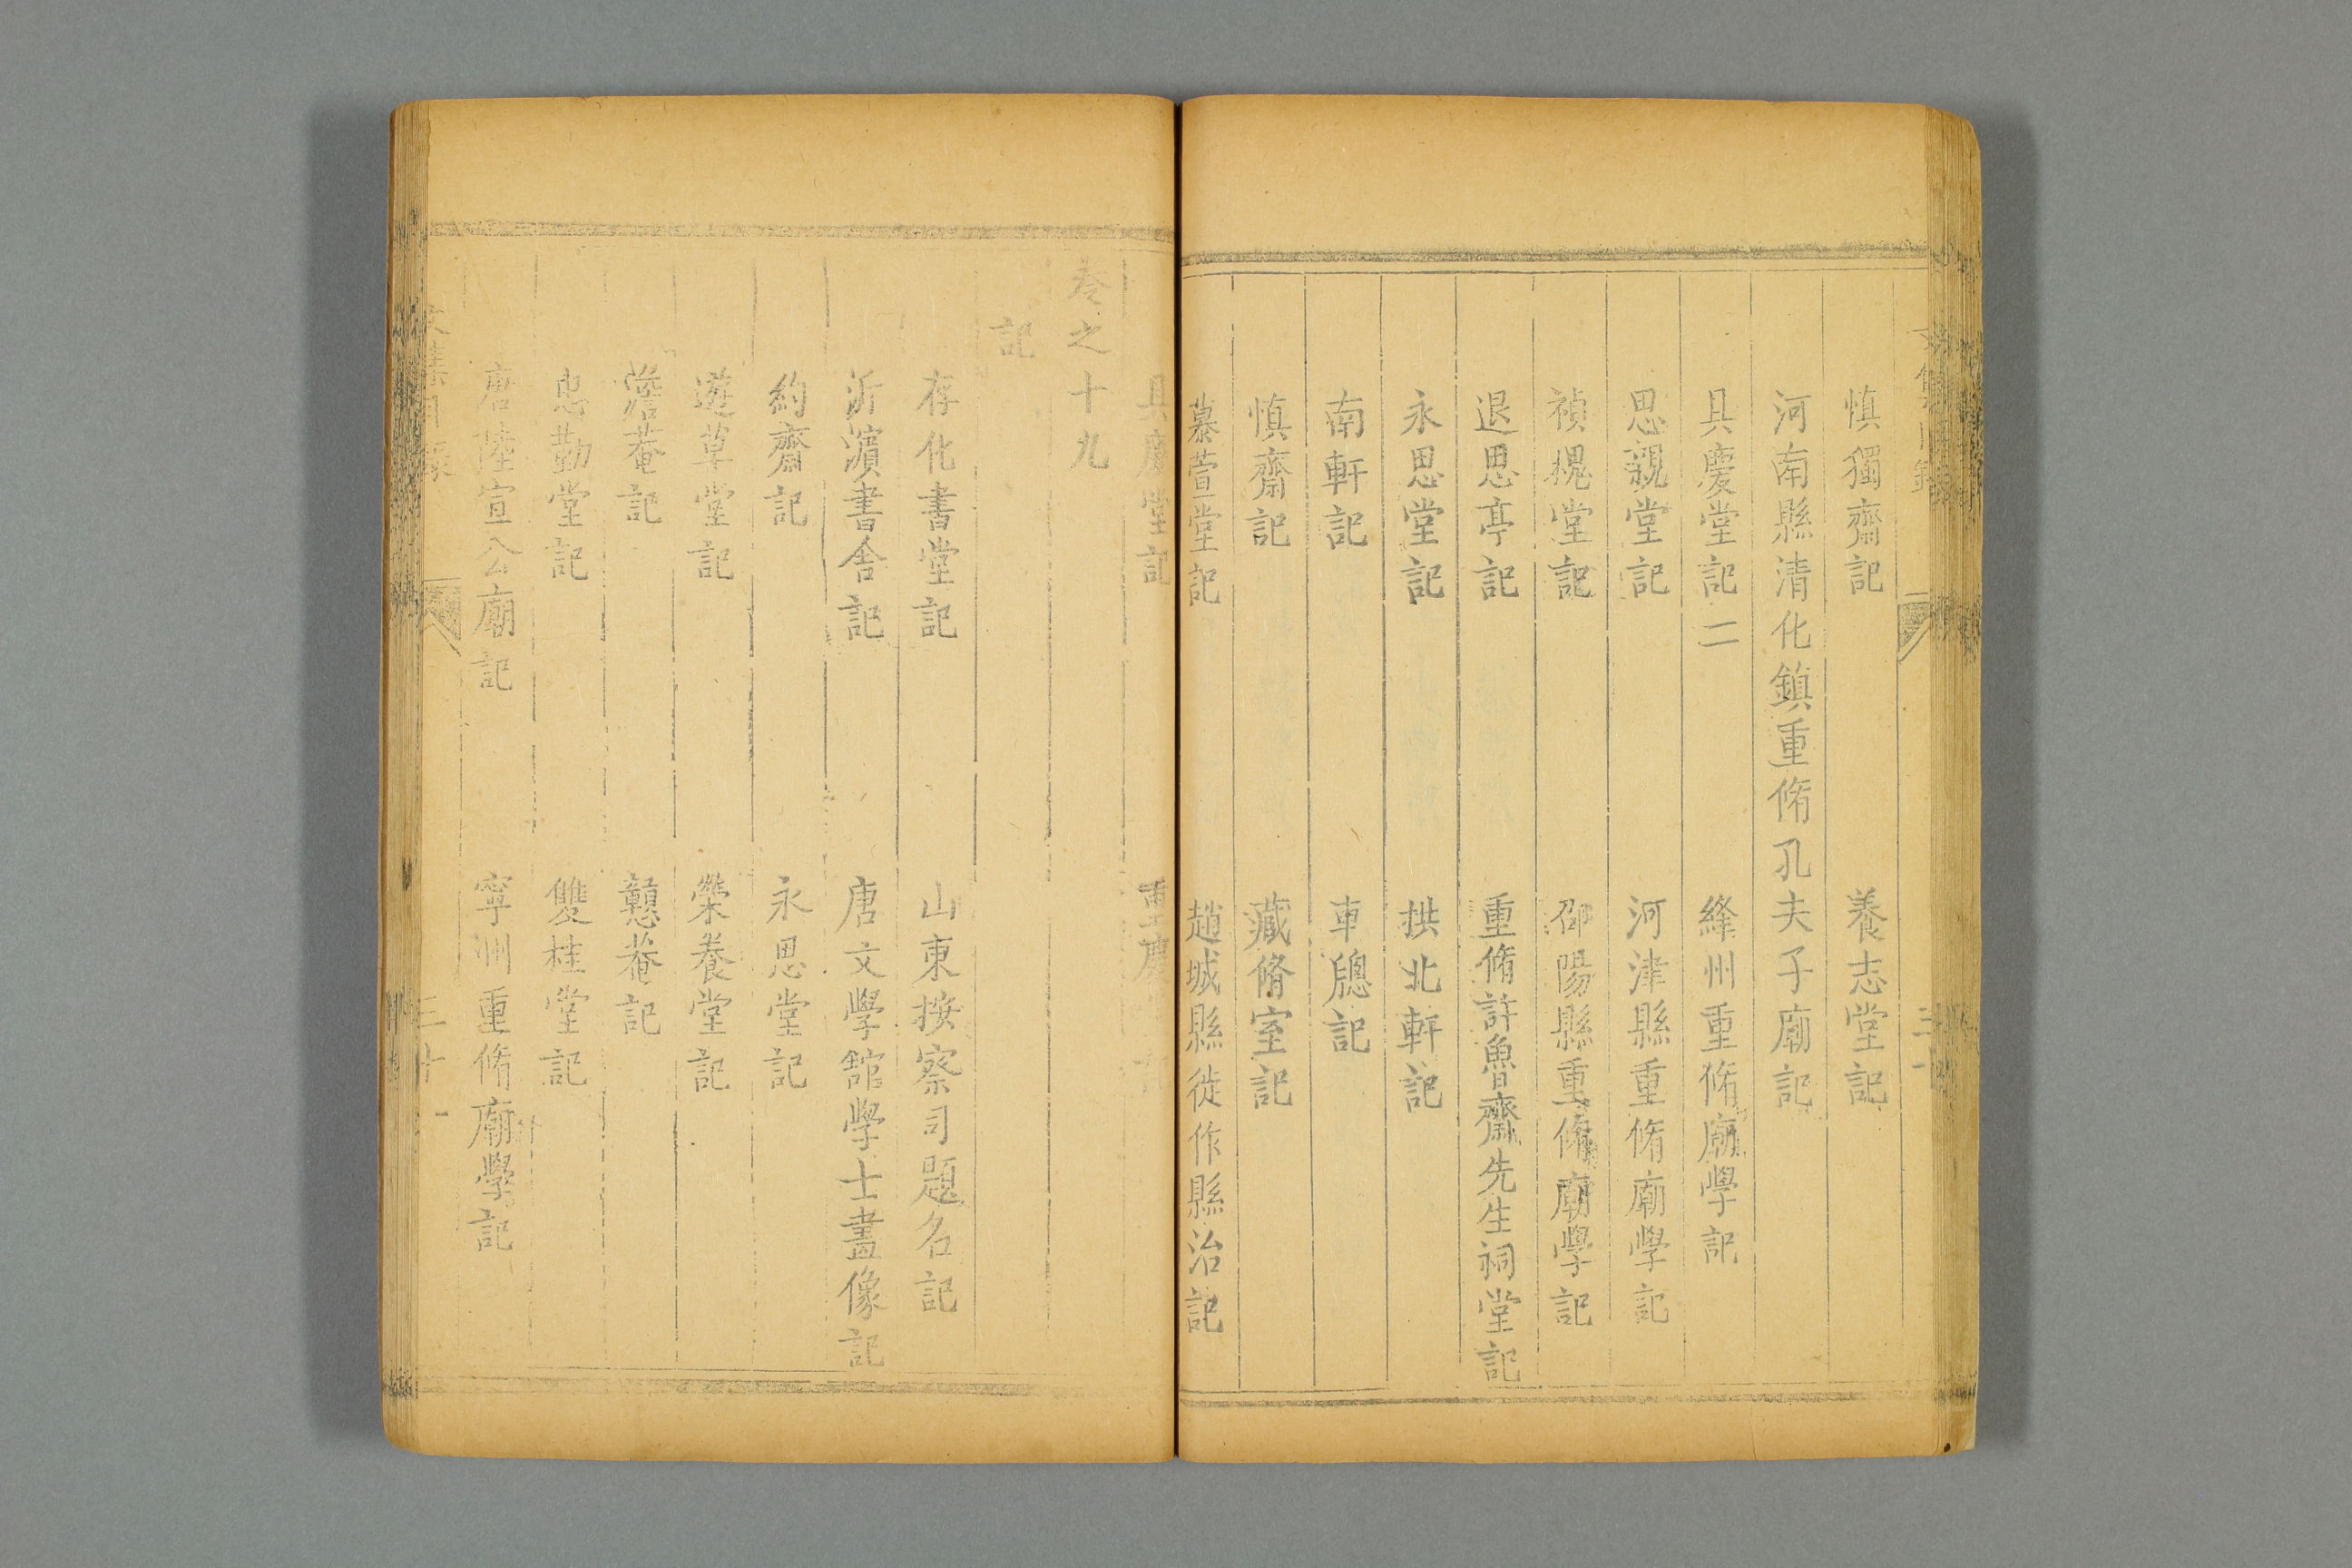 慎獨齋記　養志堂記
河南縣清化鎮重脩孔夫子廟記
具慶堂記二　絳州重脩廟學記
思親堂記　河津縣重脩廟學記
禎槐堂記　郃陽縣重脩廟學記
退思亭記　重脩許魯齋先生祠堂記
永思堂記　拱北軒記
南軒記　車牕記
慎齋記　藏脩室記
慕萱堂記　趙城縣徙作縣治記
具慶堂記　重慶
卷之十九
記
存化書堂記　山東按察司題名記
沂濱書舍記　唐文學舘學士畫像記
約齋記　永思堂記
遊草堂記　榮養堂記
澹菴記　戇菴記
忠勤堂記　雙桂堂記
唐陸宣公廟記　寧州重脩廟學記
文集目錄　三十一